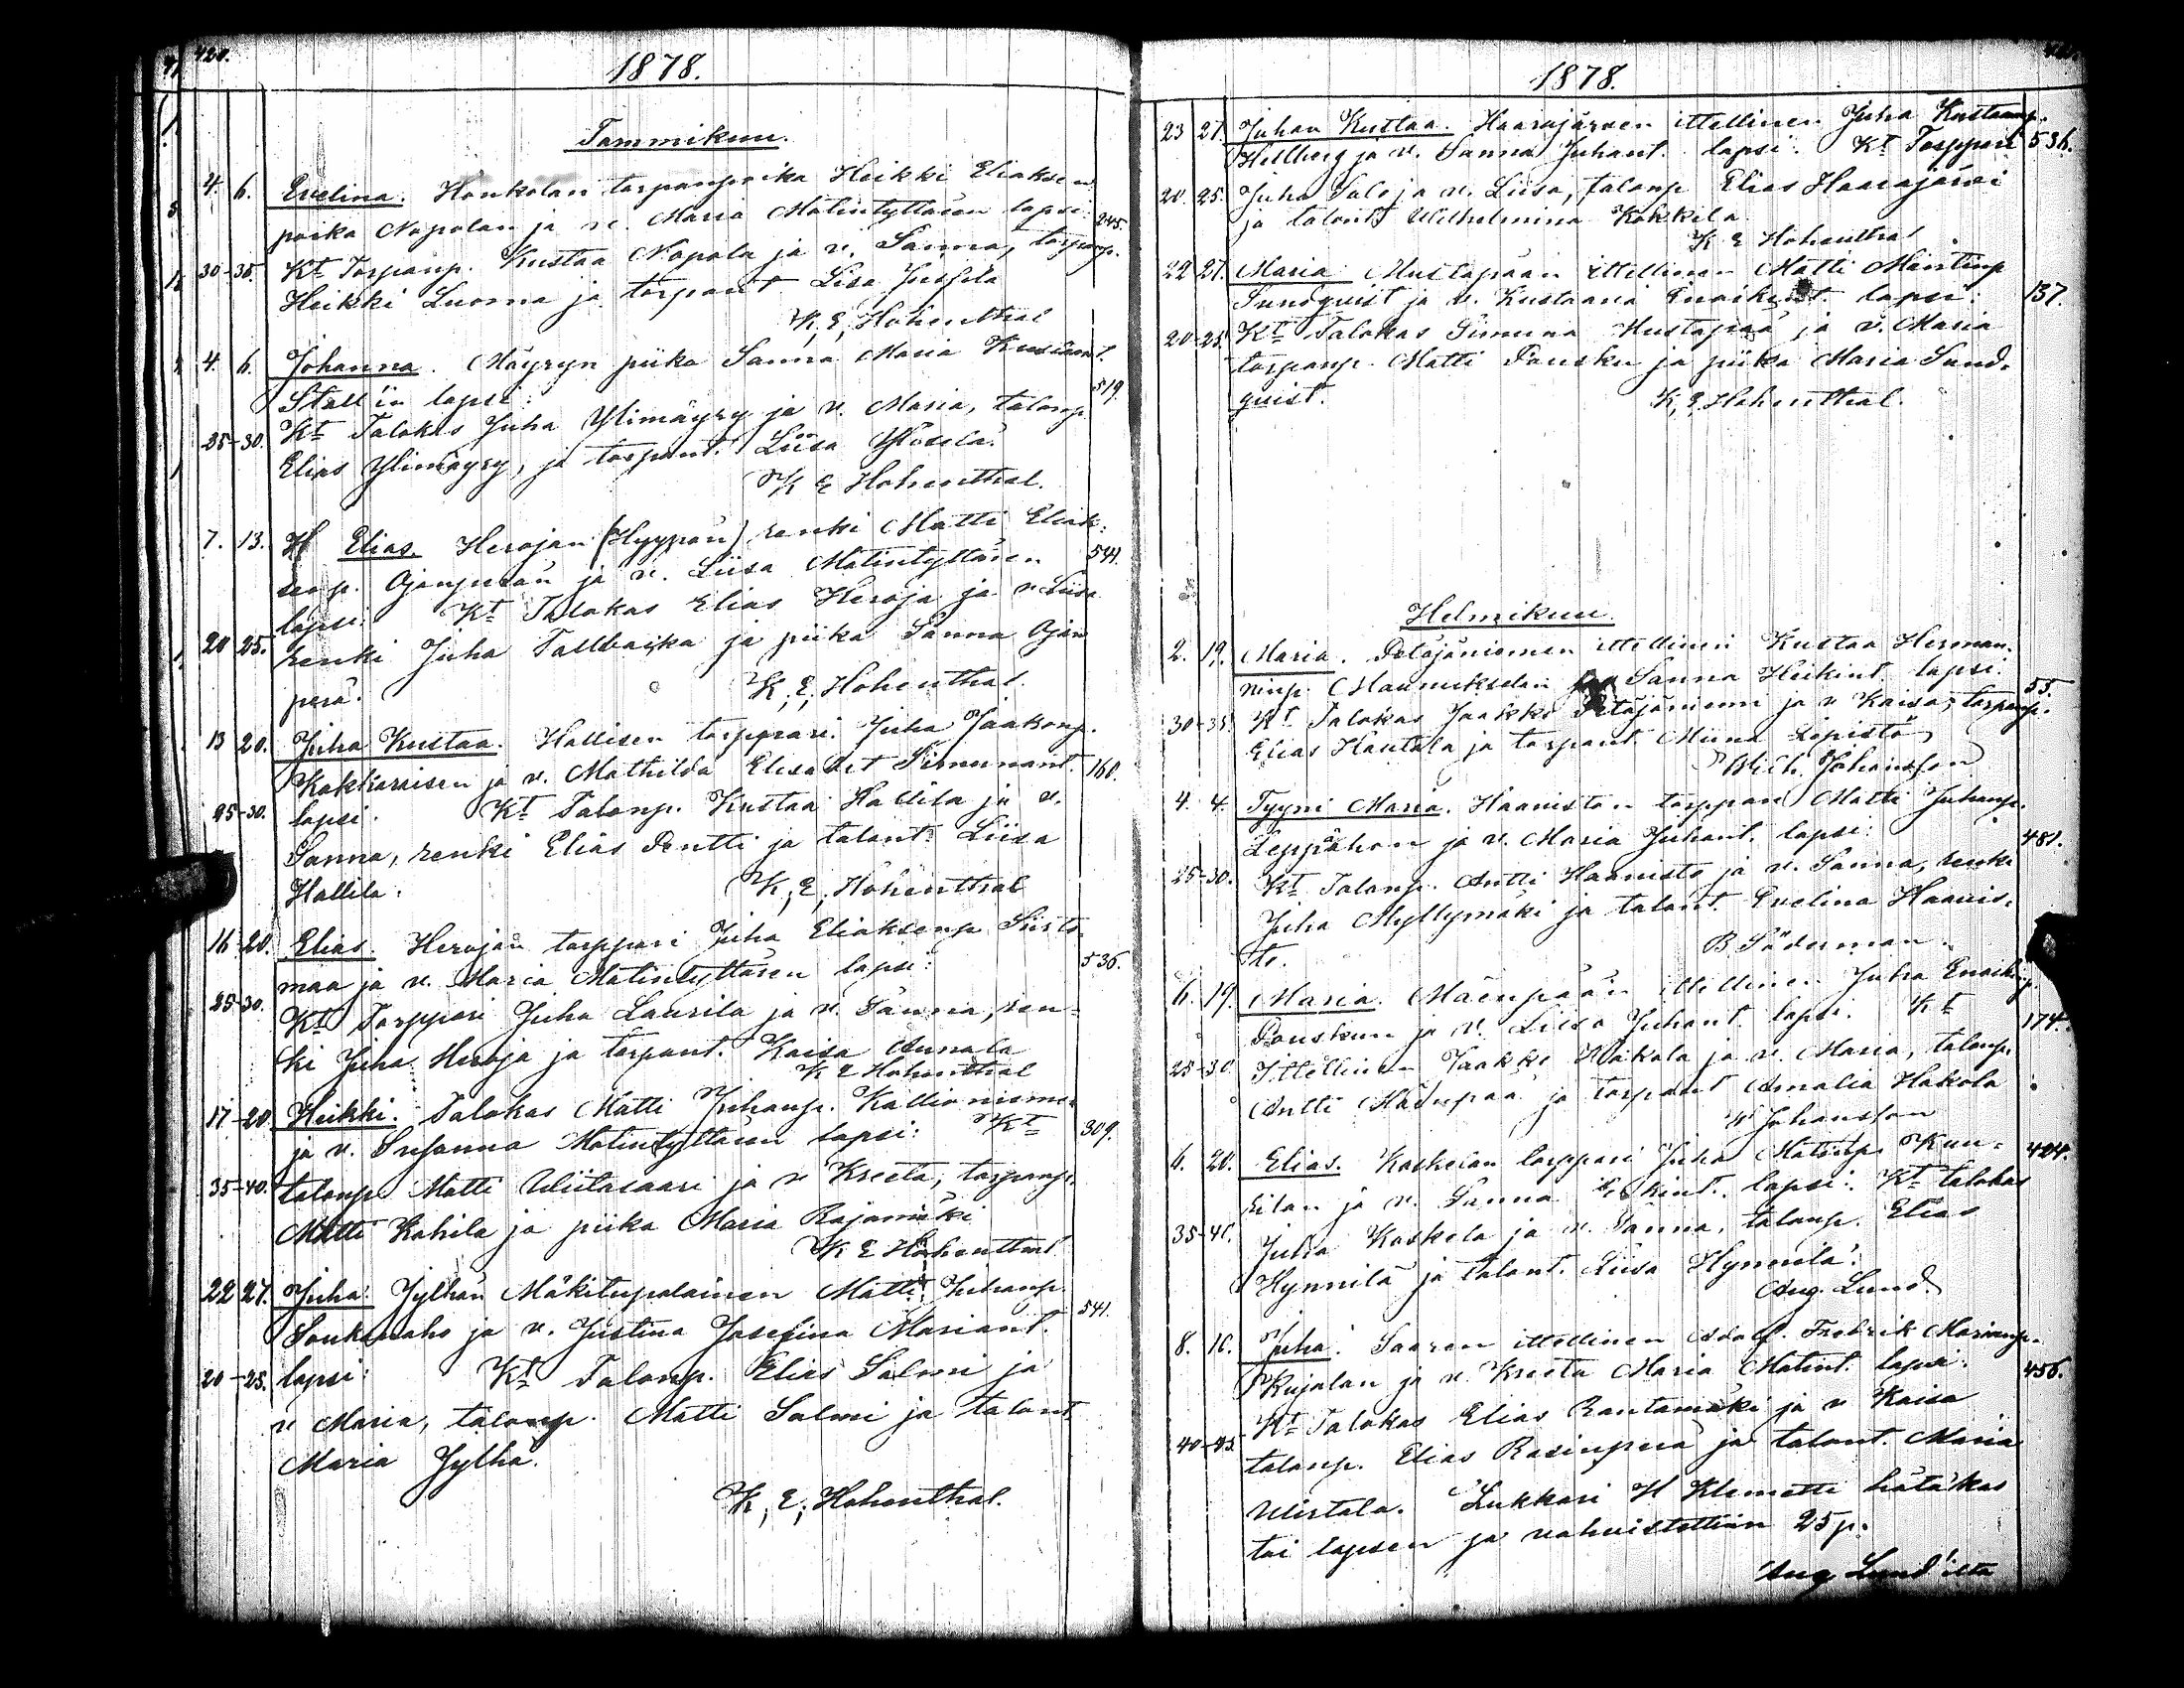 420.
1878.
Tammikuu.
4. 6. Evelina. Honkolan torpanpoika Heikki Eliaksen
poika Napolan ja v. Maria Matintyttären lapsi: 245.
30-35. Kt Torpanp. Kustaa Napola ja v. Sanna, torpanp.
Heikki Luoma ja torpant Lisa
K. E. Hohenthal
4. 6. Johanna. Mäyryn piika Sanna Maria
Stall'in lapsi: 519.
25-30. Kt Talokas Juha Ylimäyry ja v. Maria, talonp.
Elias Ylimäyry, ja torpant. Liisa
K E Hohenthal.
7. 13. H Elias. Herajan (Hyypän) renki Matti Eliak-
senp. Ojanperän ja v. Liisa Matintyttären 544.
lapsi: Kt Talokas Elias Heroja ja v. Liisa
20 25. renki Juha Tallbacka ja piika Sanna Ojan
perä.
K. E. Hohenthal.
13 20. Juha Kustaa. Hallisen torppari Juha Jaakonp.
Kakkuraisen ja v. Mathilda Elisabet Simunant. 160.
25-30. lapsi: Kt Talonp. Kustaa Hallila ja v.
Sanna, renki Elias Pentti ja talont. Liisa
Hallila. K. E. Hohenthal
16 20. Elias. Herajan torppari Juha Eliaksenp Siisto
maa ja v. Maria Matintyttären lapsi: 536.
25-30. Kt Torppari Juha Laurila ja v. Sanna, ren-
ki Juha Heroja ja torpant. Kaisa Annala
K E Hohenthal
17-20. Heikki. Talokas Matti Juhanp. Kallioniemen
ja v. Susanna Matintyttären lapsi: Kt 309.
35-40. talonp. Matti Wiitasaari ja v Kreeta, torpanp.
Matti Kohila ja piika Maria Rajamäki
K E Hohenthal
22 27. Juha. Jylhän Mäkitupalainen Matti Juhanp.
Soukanaho ja v. Justina Josefina Mariant. 541.
20-25. lapsi: Kt Talonp. Elias Salmi ja
v Maria, talonp. Matti Salmi ja talont
Maria Jylhä.
K. E. Hohenthal.
1878.
23 27. Juhan Kustaa. Haarajärven ittellinen Juha Kustaanp.
Hellberg ja v. Sanna Juhant. lapsi: Kt Torppari 536.
20. 25. Juha Salo ja v. Liisa, talonp Elias Haarajärvi
ja talont Wilhelmina Kokkila
K E Hohenthal
22 27. Maria. Mustapään ittellinen Matti Mantinp
Sundquist ja v. Kustaava lapsi: 137.
20-25. Kt Talokas Simuna Mustapää ja v. Maria
torpanp. Matti Pansku ja piika Maria Sund-
quist. K. E. Hohenthal.
Helmikuu.
2. 19. Maria. Petäjäniemen ittellinen Kustaa Herman-
ninp. Sanna Heikint. lapsi: 55.
30-35. Kt Talokas Jaakko Petäjäniemi ja v Kaisa, torpanp.
Elias Hautala ja torpant. Miina Lepistö
Wilh. Johansson
4. 4. Tyyni Maria. Haaviston torppari Matti Juhanp.
Leppähon ja v. Maria Juhant. lapsi: 481.
25-30. Kt Talonp. Antti Haavisto ja v. Sanna, renki
Juha Myllymäki ja talont. Evelina Haavis-
to. B Söderman.
6. 19. Maria. Mäenpään ittellinen Juha
Panskun ja v. Liisa Juhant. lapsi. Kt 174.
25-30 Ittellinen Jaakko Hakala ja v. Maria, talonp.
Antti Mäenpää ja torpant Amalia Hakola
W Johansson
6. 20. Elias. Koskelan torppari Juha Matintp. Kun- 404.
eilan ja v. Sanna lapsi: Kt talokas
35-40. Juha Koskela ja v. Sanna, talonp. Elias
Hynnilä ja talont. Liisa Hynnilä.
Aug. Lund.
8. 16. Juha. Saaren ittellinen Adolf. Fredrik Marianp.
Kujalan ja v. Kreeta Maria Matint. lapsi: 456.
Kt Talokas Elias Rantamäki ja v Kaisa
40-45. talonp. Elias Rasinperä ja talont. Maria
Uitstala. Lukkari H Klemetti hätäkas
toi lapsen ja vahvistettiin 25 p.
Aug Lund'ilta